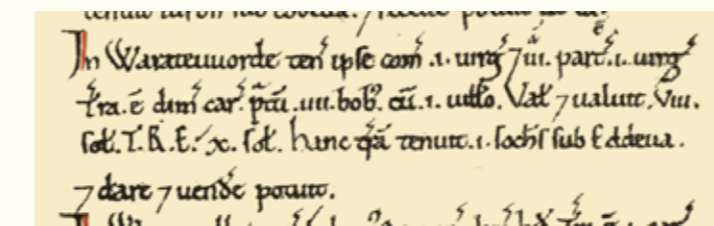 In Warateuuorde ten͛ ipse com̃ .i. uirg͛ ⁊ iii. part͛ .i. uirg͛
t͛ra. ē dim͛ car͛. p̃tū .iiii. bob͛. cū .i. uillo. Val͛ ⁊ ualuit .viii.
sol͛. T.R.E. x. sol͛. hanc t͛rā tenuit .i. sochs͛ sub Eddeua.
⁊ dare ⁊ uende͛ potuit.